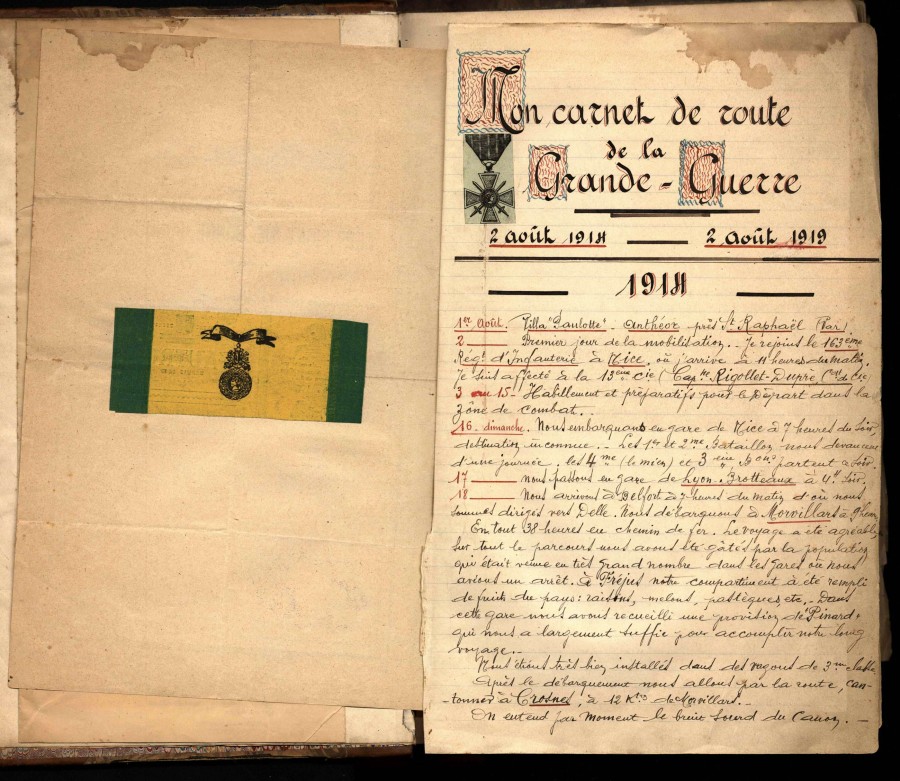 Mon carnet de route
de la
Grande - Guerre
2 Août 1914 — 2 Août 1919
1914
1er Août. Villa "Paulotte" - Anthéor près St Raphaël (Var)
2 — Premier jour de la mobilisation. - Je rejoins le 163ème
Régt d'Infanterie à Nice, où j'arrive à 11 heures du matin.
Je suis affecté à la 13ème cie (Capne Rigollet-Dupré Cdt de Cie)
3 au 15 - Habillement et préparatifs pour le Départ dans la
zône de combat. -
16. dimanche. Nous embarquons en gare de Nice à 7 heures du soir,
destination inconnue. - Les 1er et 2me Bataillon nous devancent
d'une journée. les 4me (le mien) et 3ème Bons partent ce soir.
17 — nous passons en gare de Lyon-Brotteaux à 4h soir.
18 — Nous arrivons à Belfort à 7 heures du matin d'où nous
sommes dirigés vers Delle. Nous débarquons à Morvillars à 9 heures
En tout 38 heures en chemin de fer. Le voyage a été agréable,
sur tout le parcours nous avons été gâtés par la population
qui était venue en très grand nombre dans les gares où nous
avions un arrêt. à Fréjus notre compartiment à été rempli
de fruits du pays: raisins, melons, pastèques, etc. - Dans
cette gare nous avons recueilli une provision de "Pinard"
qui nous a largement suffie pour accomplir notre long
voyage. -
Nous étions très bien installés dans des wagons de 3me classe
Après le débarquement nous allons par la route, can-
-tonner à Grosne, à 12 Kts de Morvillars. -
On entend par moment le bruit sourd du Canon. -